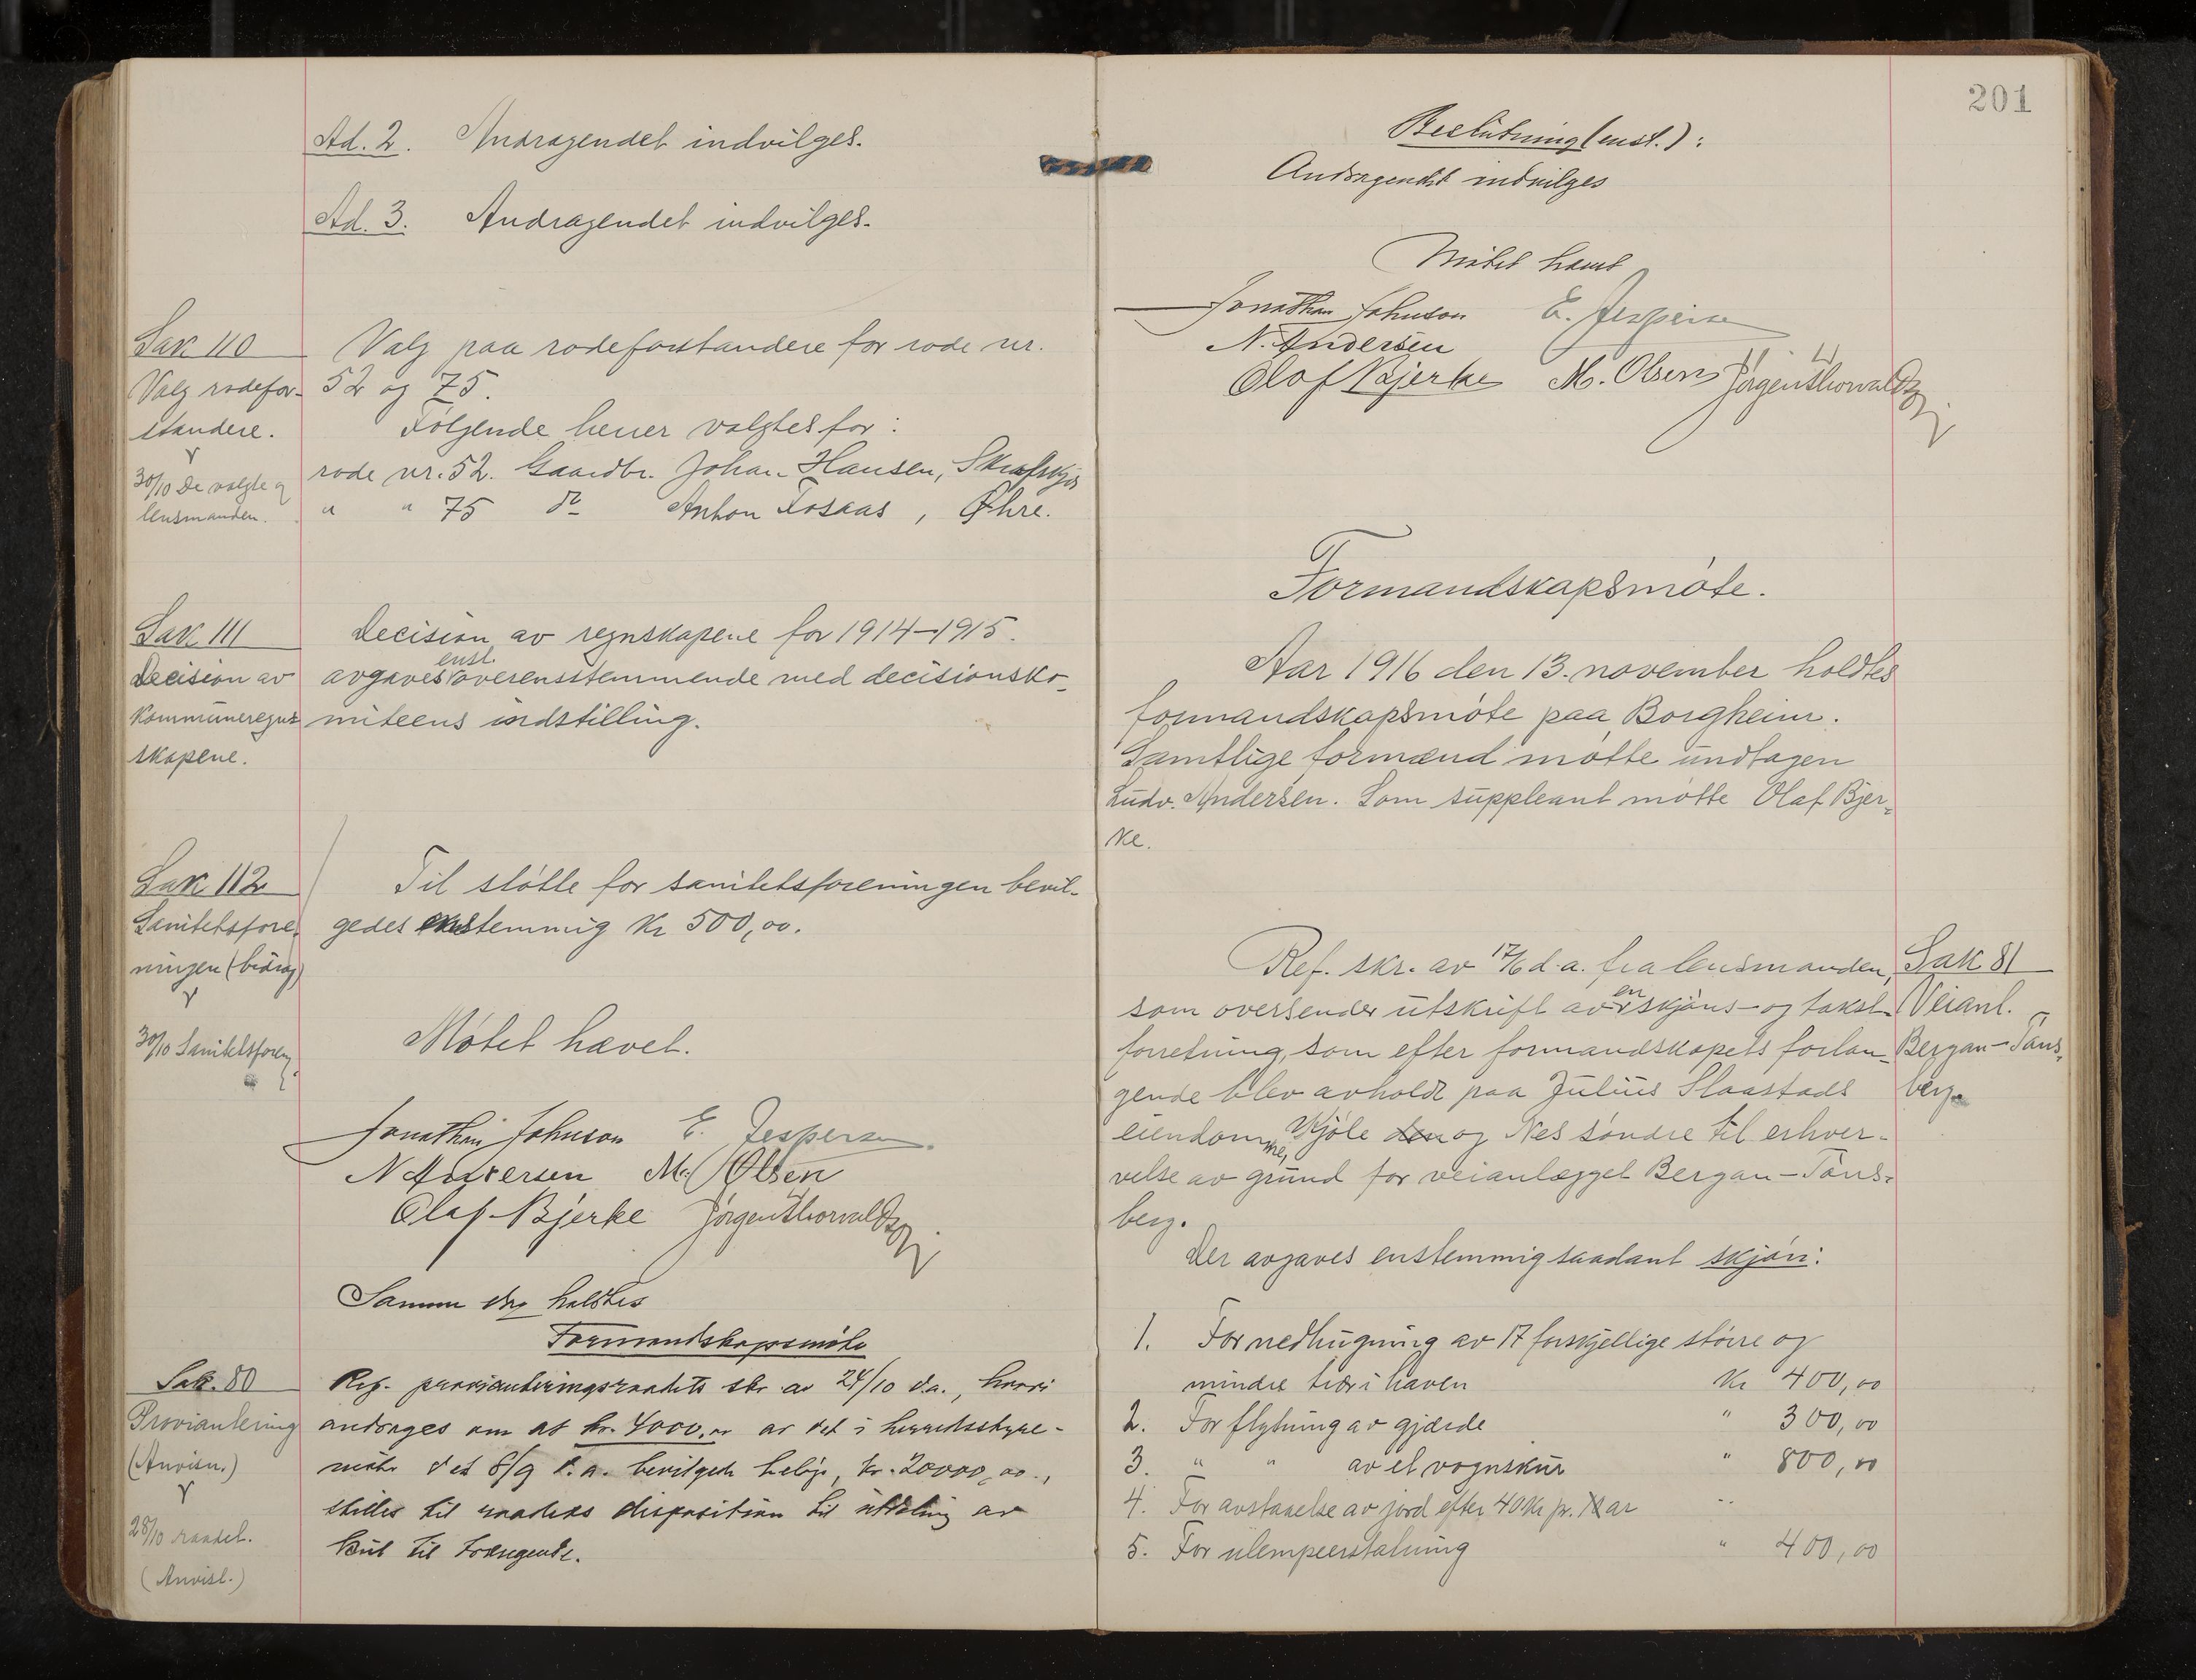 Ad. 2. Andragendet indvilges.
Ad. 3. Andragendet indvilges.
Sak 110
Valg rodefor-
standere.
30/10 De valgte og
lensmanden.
Valg paa rodeforstandere for rode nr.
52 og 75.
Følgende herrer valgtes for:
rode nr. 52. Gaardbr. Johan Hansen,
" " 75 do Anton Fosaas, Øhre.
Sak 111
Decision av
kommuneregn-
skapene.
Decision av regnskapene for 1914-1915.
enst.
avgaves overensstemmende med decisionsko-
miteens indstilling.
Sak 112
Sanitetsfore-
ningen (bidrag)
30/10 Sanitetsforen
Til støtte for sanitetsforeningen bevil-
gedes enstemmig kr 500,00.
Møtet hævet.
Jonathan Johnson E. Jespersen
N Andersen M. Olsen
Olaf Bjerke Jørgen Thorvaldsen
Samme dag holdtes
Formandskapsmøte
Sak. 80
Proviantering
(Anvisn.)
28/10 raadet.
(Anvisl.)
Ref. provianteringsraadets skr. av 24/10 d.a., hvori
andrages om at kr. 4000,00 av det i herredsstyre-
møte det 8/9 d.a. bevilgede beløp, kr. 20000,00.,
stilles til raadets disposition til utdeling av
kul til trængende.
201
Beslutning (enst.):
Andragendet indvilges
Møtet hævet
Jonathan Johnson E. Jespersen
N. Andersen
Olaf Bjerke M. Olsen Jørgen Thorvaldsen
Formandskapsmøte.
Aar 1916 den 13. november holdtes
formandskapsmøte paa Borgheim.
Samtlige formænd møtte undtagen
Ludv. Andersen. Som suppleant møtte Olaf Bjer-
ke.
Sak 81
Veianl.
Bergan-Tøns-
berg.
Ref. skr. av 17/6 d.a. fra lensmanden,
en
som oversender utskrift av skjøns- og takst-
forretning, som efter formandskapets forlan-
gende blev avholdt paa Julius Slaastads
eiendomme, Kjøle den og Nes søndre til erhver-
velse av grund for veianlægget Bergan-Tøns-
berg.
Der avgaves enstemmig saadant skjøn:
1. For nedhugning av 17 forskjellige større og
mindre trær i haven kr 400,00
2. For flytning av gjærde " 300,00
3. " " av et vognskur " 800,00
4. For avstaaelse av jord efter 40 kr pr. ar "
5. For ulempeerstatning " 400,00